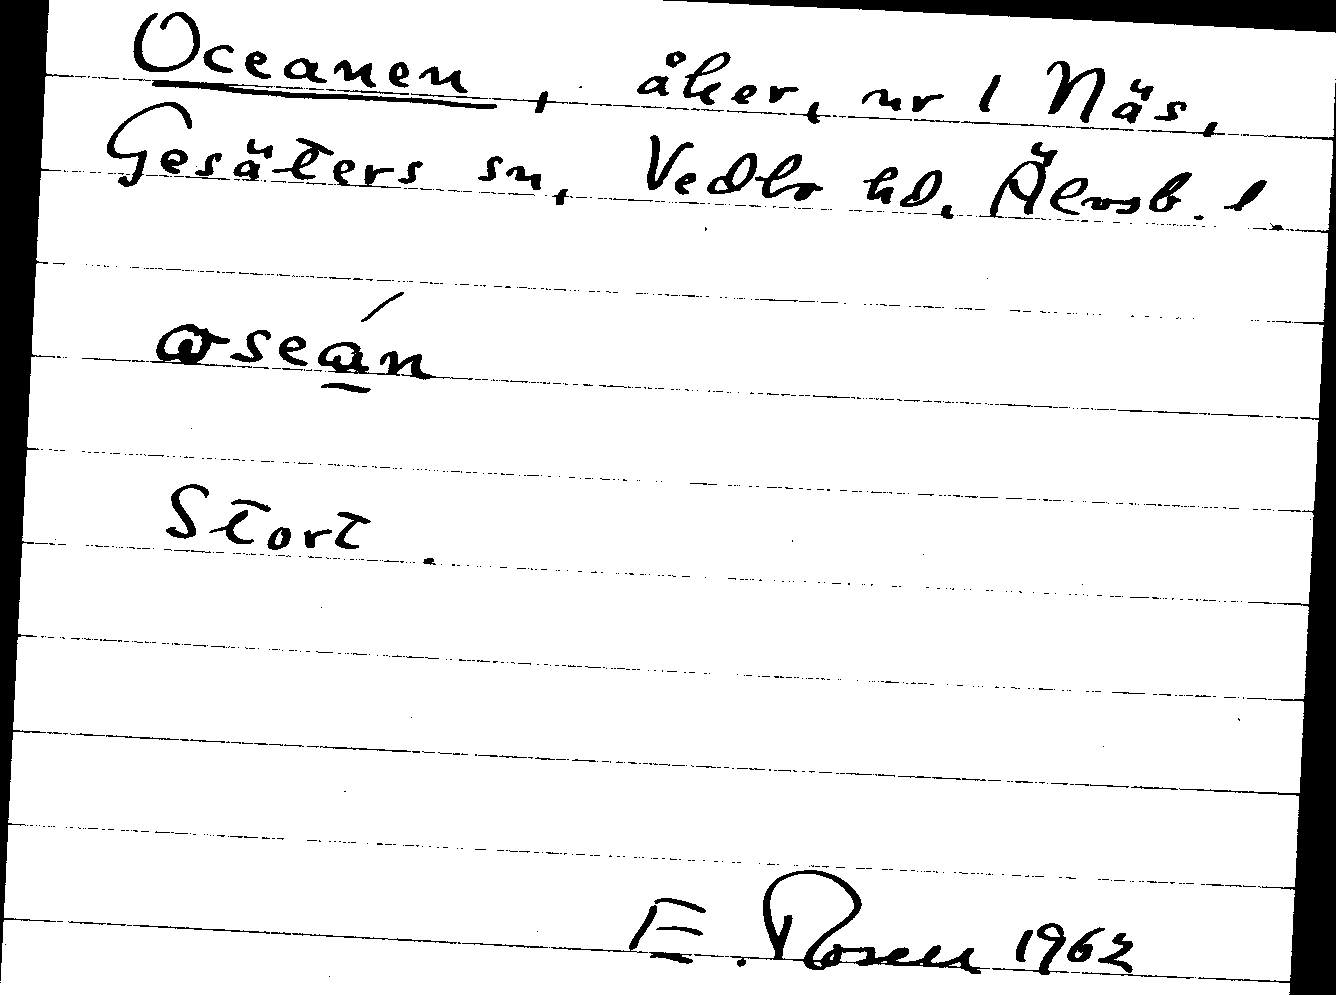 Oceanen, åker, nr 1 Näs,
Gesäters sn, Vedbo hd, Älvsb. l.
ꞷseán
Stort.
E. Rosell 1962